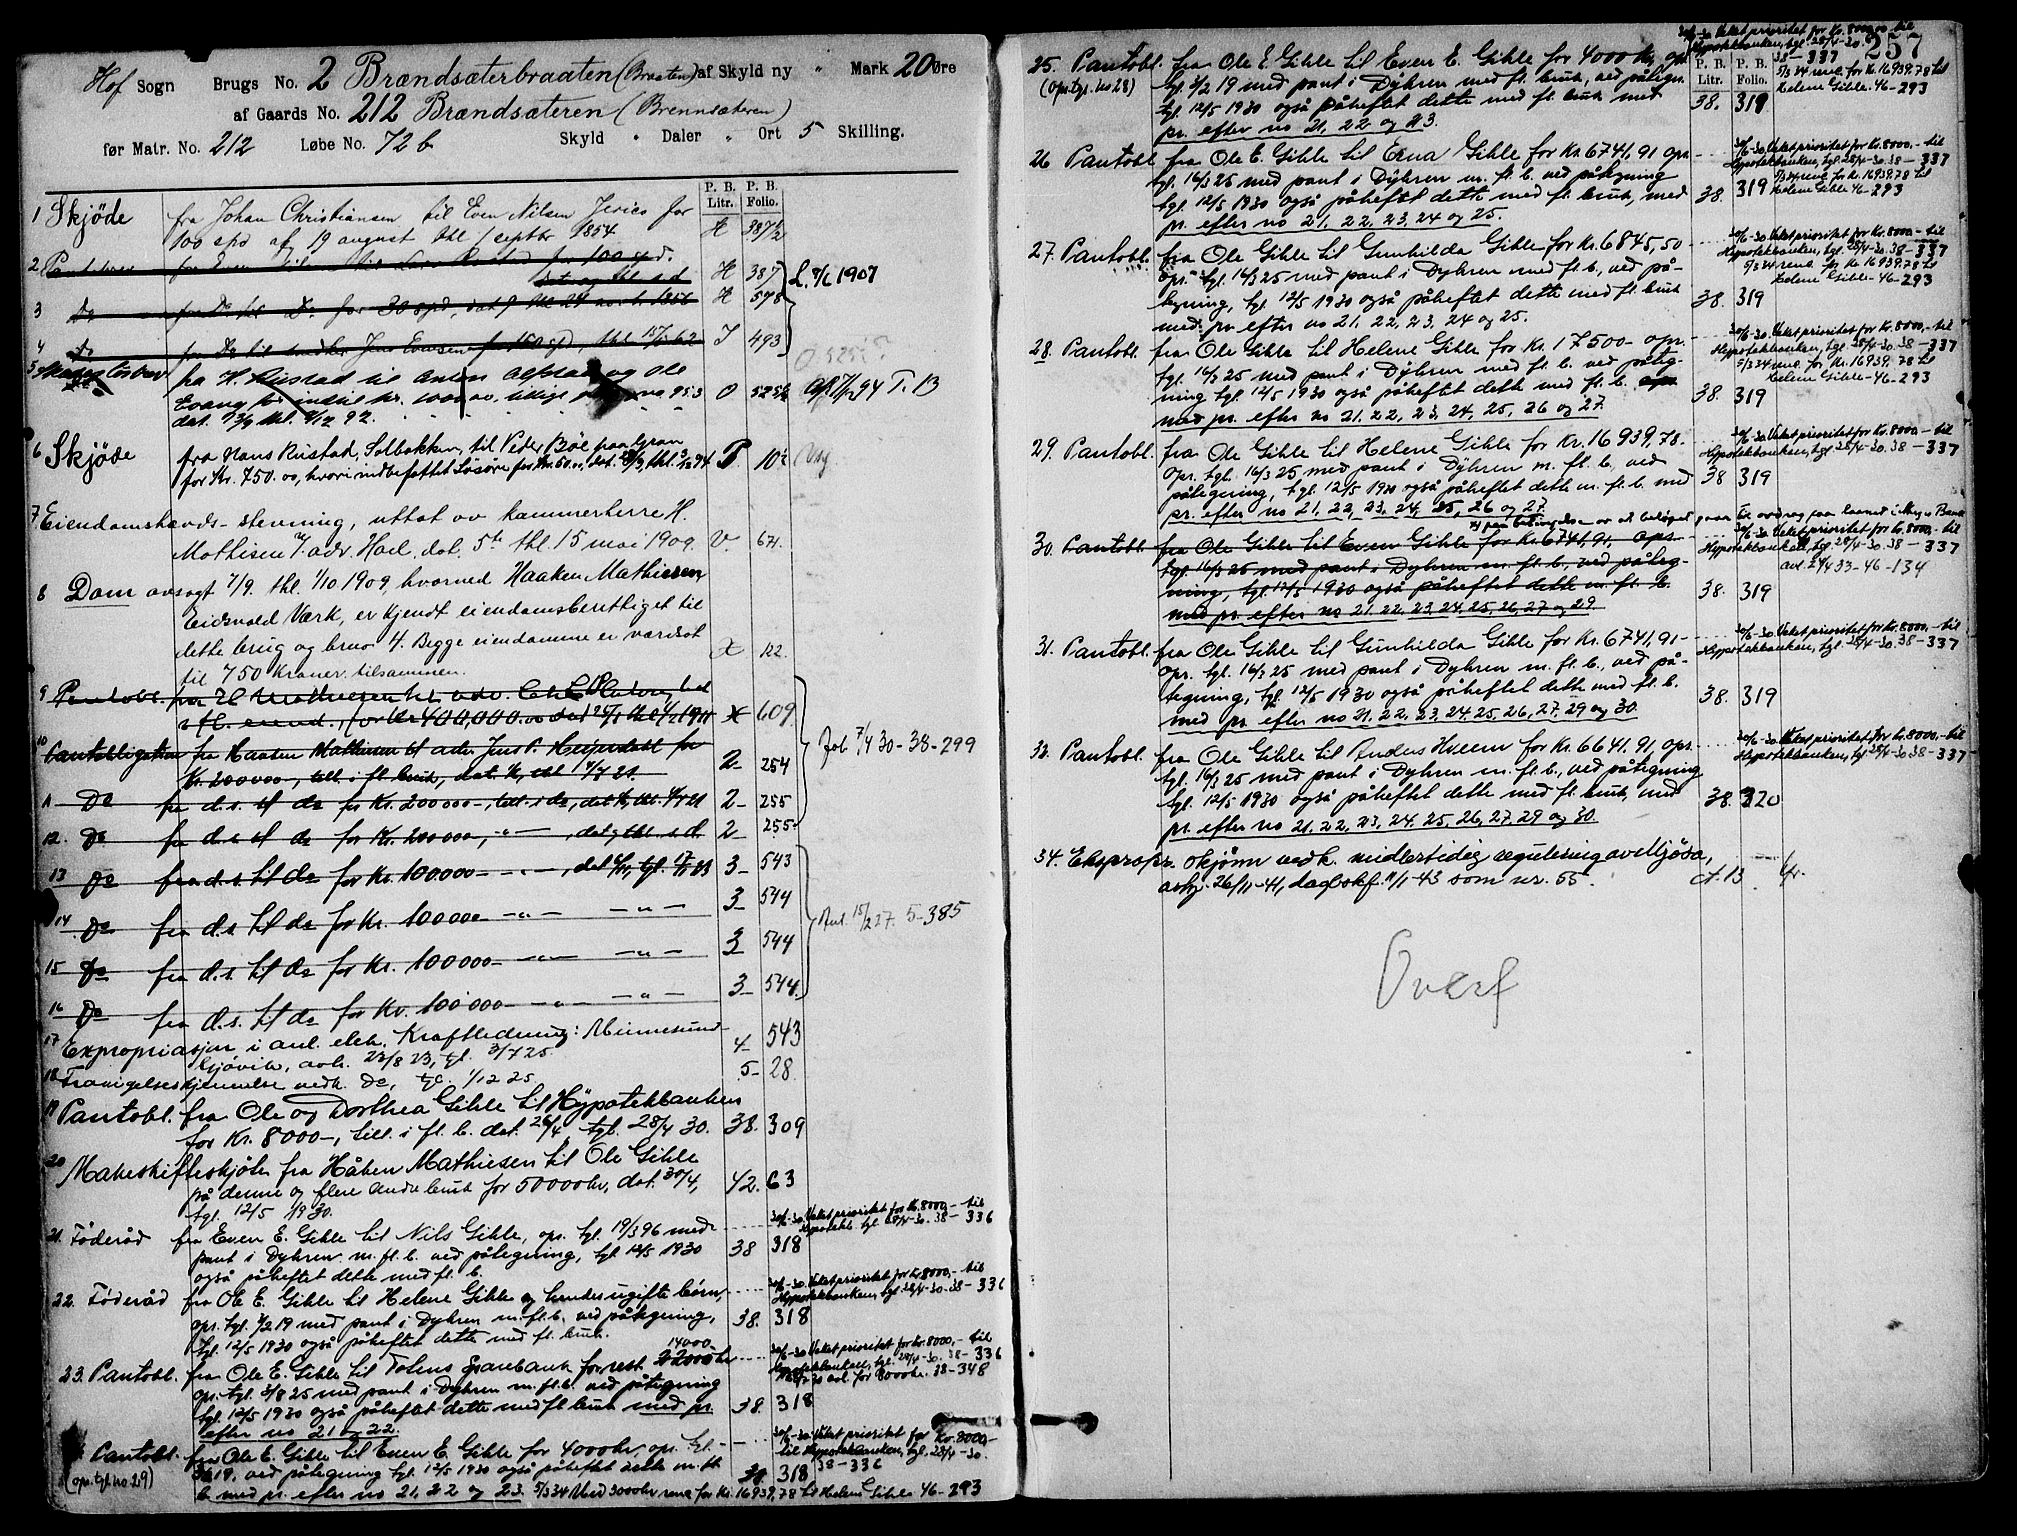 Hof Sogn Brugs No. 2 Brændsæterbraaten (Braaten) af Skyld ny " Mark 20 Øre
af Gaards No. 212 Brændsæteren (Brennsæteren)
før Matr. No. 212 Løbe No. 72 b Skyld " Daler " Ort 5 Skilling.
P. B. Litr. P. B. Folio.
1 Skjøde fra Johan Christiansen til Even Nilsen Jerics for
100 spd af 19 august thl 1 septbr 1854 H 387 1/2
2 Pantebrev fra Even til Lars for 100 spd.
dat og thl s d H 387
3 Do fra Do til Do for 30 spd, dat 9 thl 24 1856 H 598 L. 7/6 1907
4 Do fra Do til Jens Evensen for 150 spd, thl 15/ 62 I 493
5 fra H. Rustad til Anton Alfstad og Ole
Evang for indtil kr. 1000.00, 953 O 525 1/2 Afl. 94 T. 13
dat. 13/9 thl. 2/12 92.
6 Skjøde fra Hans Rustad, Solbakken, til Peder Bøe paa Gran
for Kr. 750.00, hvori indbefattet Løsøre for Kr. 50.00, dat. 28/9, thl. 3/10 94 P 102
7 Eiendomshævds-stevning, uttat av kammerherre H.
Mathisen v/ adv. Hoel, dat. 5te thl. 15 mai 1909. V. 671.
8 Dom avsagt 7/9. thl. 1/10 1909, hvorved Haaken Mathiesen
Eidsvold Værk, er kjendt eiendomsberettiget til
dette brug og bruv 4. Begge eiendomme er værdsat
til 750 Kroner tilsammen. X 122.
9 Pantobl. fra H Mathiesen til adv.
i fl. eiend., for Kr 400,000.00 dat 24/1 thl 1/2 1911 X 609
10 Pantobligation fra Haaken Mathiesen til adv. Jens P. Heyerdahl for
Kr. 200000-, till. i fl. bruk, dat. thl 4/7 21. 2- 254 Forb. 7/4 30-38-299
11 Do fra d.s. til do for Kr. 200000-, till. i do, dat thl. 4/7 21 2- 255
12. Do fra d.s. til do for Kr. 200000,- " - , dat og thl. s. d. 2- 255
13 Do fra d.s. til do for Kr. 100000- - " -, dat tgl. 17/ 23 3- 543
14 Do fra d.s. til do for Kr. 100000- -"- -"- 3- 544
15 Do fra d.s. til do for Kr. 100000- -"- -"- 3- 544 Avl. 15/2 27. 5-385
16 Do fra d.s. til do for Kr. 100000- -"- -"- 3- 544.
17 Expropriasjon i anl. elek. Kraftledning: Minnesund-
Gjøvik, avh. 22/8 23, tgl. 3/7 25. 4- 543
18 Fravigelseskjennelse vedk. Do, tgl. 1/12 25. 5- 28
19 Pantobl. fra Ole og Dorthea Gihle til Hypotekbanken
for Kr. 8000-, till. i fl. b. dat. 26/4, tgl. 28/4 30. 38. 309
20 Makeskifteskjøte fra Håken Mathiesen til Ole Gihle
på denne og flere andre bruk for 50000 kr, dat. 30/4,
tgl. 12/5 1930. 42. 63
21. Føderåd fra Even E. Gihle til Nils Gihle, opr. tgl. 19/3 96 med 20/6-30. Veket prioritet for Kr. 8000,- til
Hypotekb. tgl. 28/4-30. 38-336
pant i Dyhren m. fl. b. ved påtegning, tgl 12/5 1930 38 318
også påheftet dette med fl. b.
22. Føderåd fra Ole E. Gihle til Helene Gihle og hendes ugifte børn, 20/6-30. Veket prioritet for Kr 8000,- til
Hypotekbanken, tgl 28/4-30. 38-336
opr. tgl. 3/2 19 med pant i Dyhren m. fl. b. ved påtegning, 38. 318
tgl. 12/5 1930 også påheftet dette med fl. bruk.
14000-
23. Pantobl. fra Ole E. Gihle til Totens Sparebank for rest 22000 kr 20/6-30 Veket prioritet for Kr. 8000,- til
Hypotekbanken, tgl. 28/4-30. 38-336
opr. tgl. 3/8 25 med pant i Dyhren m. fl. b. ved påtegning 30 avl. for 8000 kr. 38-348
tgl. 12/5 1930 også påheftet dette med fl bruk med pr. 38. 318
efter no 21 og 22.
Pantobl. fra Ole E. Gihle til Even E. Gihle for 4000 kr, opr. tgl. 20/6-30 Veket prioritet for Kr. 8000,-
til Hypotekbanken, tgl. 28/4-30.
38-336
(opr. tgl. no 29) 3/2 19, ved påtegning tgl 12/5 1930 også påheftet dette m. fl. 38. 318
b. med pr. efter no 21, 22 og 23. 5/3 34 Med 3000 kr veket for Kr. 16939,78 til Helene Gihle 46-293
257
P. B. Litr. P. B. Folio.
25. Pantobl. fra Ole E Gihle til Even E. Gihle for 4000 kr, opr. 20/6-30 Veket prioritet for Kr. 8000,00 til
Hypotekbanken, tgl. 28/4-30.
38-337
(Opr. tgl. no 28) tgl. 3/2 19 med pant i Dyhren med fl. bruk, ved påtegn. 5/3 34 veket for Kr 16939.78 til
Helene Gihle. 46-293
tgl 12/5 1930 også påheftet dette med fl. bruk med 38. 319
pr. efter no 21, 22 og 23.
26 Pantobl fra Ole E. Gihle til Erna Gihle for Kr. 6741,91 opr. 20/6-30 Veket prioritet for Kr. 8000,- til
Hypotekbanken, tgl 28/4-30. 38-337
tgl. 16/3 25 med pant i Dyhren m. fl. b. ved påtegning 5/3 34 veket for Kr 16939.78 til
Helene Gihle 46-293
tgl. 12/5 1930 også påheftet dette med fl. bruk, med 38. 319
pr. efter no 21, 22, 23, 24 og 25.
27. Pantobl. fra Ole Gihle til Gunhilda Gihle for Kr. 6845,50 20/6-30 Veket prioritet for Kr. 8000,- til
Hypotekbanken, tgl. 28/4-30. 38-337
opr. tgl. 16/3 25 med pant i Dyhren med fl. b., ved på- 5/3 34 veket for Kr 16939.78 til
Helene Gihle. 46-293
tegning, tgl 12/5 1930 også påheftet dette med fl. bruk 38. 319
med pr. efter no 21, 22, 23, 24 og 25.
28. Pantobl. fra Ole Gihle til Helene Gihle for Kr. 17500- opr. 20/6-30 Veket prioritet for Kr. 8000,- til
Hypotekbanken, tgl 28/4-30 38-337
tgl. 16/3 25 med pant i Dyhren med fl. b. ved påteg- 5/3 34 veket for Kr. 16939.78 til
Helene Gihle-46-293
ning tgl. 12/5 1930 også påheftet dette med fl. b. 38. 319
med pr. efter no 21. 22, 23, 24, 25, 26 og 27.
29. Pantobl. fra Ole Gihle til Helene Gihle for Kr. 16939,78. 20/6-30 Veket prioritet for Kr. 8000,- til
Hypotekbanken, tgl. 28/4-30. 38-337
opr. tgl. 16/3 25 med pant i Dyhren m. fl. b., ved
påtegning, tgl. 12/5 1930 også påheftet dette m. fl. b. med 38 319
pr. efter no 21, 22, 23, 24, 25, 26 og 27.
30. Pantobl. fra Ole Gihle til Even Gihle for Kr. 6741,91, opr. 20/6-30 Veket prioritet for Kr. 8000,- til
Hypotekbanken, tgl 28/4-30. 38-337
tgl. 16/3 25 med pant i Dyhren m. fl. b., ved påteg- avl. 24/4 33-46-134
ning, tgl. 12/5 1930 også påheftet dette m. fl. b. 38. 319
med pr. efter no 21. 22, 23, 24, 25, 26, 27 og 29.
31. Pantobl. fra Ole Gihle til Gunhilda Gihle for Kr. 6741,91- 20/6-30 Veket prioritet for Kr. 8000,- til
Hypotekbanken, tgl. 28/4-30. 38-337
opr. tgl. 16/3 25 med pant i Dyhren m. fl. b., ved på-
tegning, tgl. 12/5 1930 også påheftet dette med fl. b. 38. 319
med pr. efter no 21. 22, 23, 24. 25, 26, 27, 29 og 30.
32. Pantobl. fra Ole Gihle til Anders Hveem for Kr. 6641,91, opr. 20/6-30 Veket prioritet for Kr. 8000,- til
Hypotekbanken, tgl 28/4-30. 38-337
tgl. 16/3 25 med pant i Dyhren m. fl. b., ved påtegning
tgl. 12/5 1930 også påheftet dette med fl. bruk, med 38. 320
pr. efter no 21. 22, 23, 24. 25, 26, 27, 29 og 30.
34. Ekspropr. skjønn vedk. midlertidig regulering av Mjøsa,
avhj. 26/11-41, dagbokf. 11/1-43 som nr. 55. A. 13
Overf